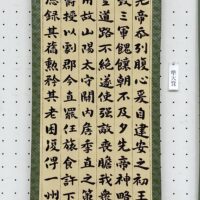 先帝忝列腹心爰自建安之初王
毀三軍餽饟朝不及夕先帝神略
豆道路不絕遂使強敵喪膽我眾
用故山陽太守關內侯季直之策
爵授以劇郡今直罷任旅食許下
德錄其舊勳矜其老困復俾一州